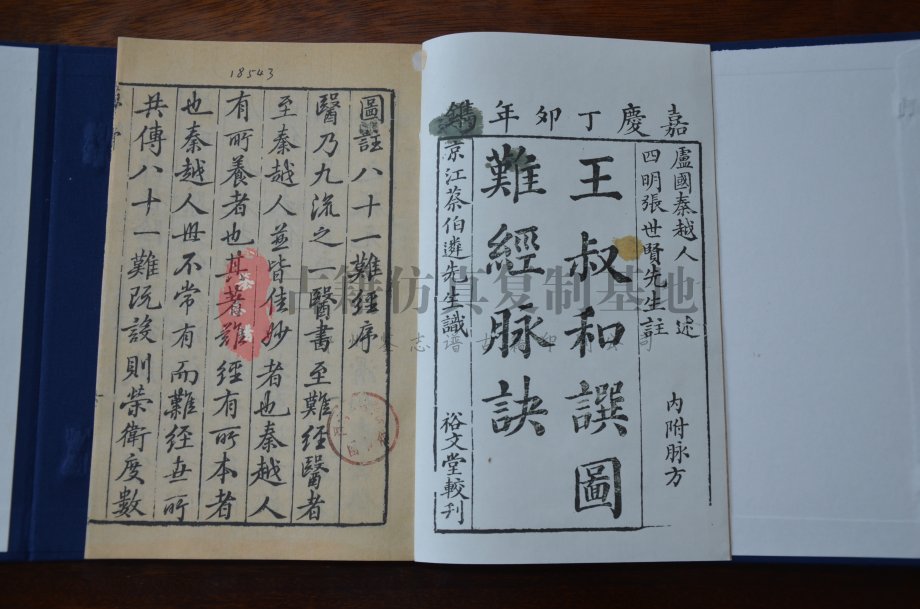 嘉慶丁卯年鐫
盧國秦越人述
四明張世賢先生註
內附脉方
王叔和譔圖
難經脉訣
京江蔡伯遴先生識
裕文堂較刋
18543
圖註八十一難經序
醫乃九流之一醫書至難經醫者
至秦越人並皆佳妙者也秦越人
有所養者也其著難經有所本者
也秦越人毋不常有而難經世所
共傳八十一難既設則榮衛度數
古籍仿真复制基地